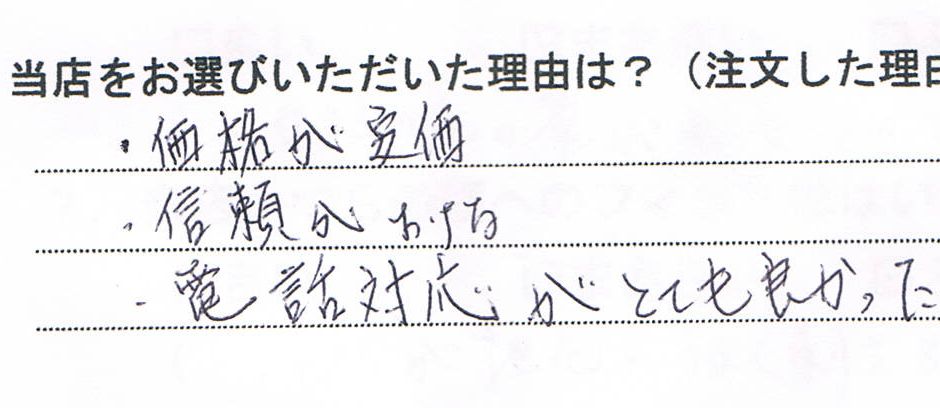 当店をお選びいただいた理由は？（注文した理由
・価格が安価
・信頼がおける
・電話対応がとても良かった